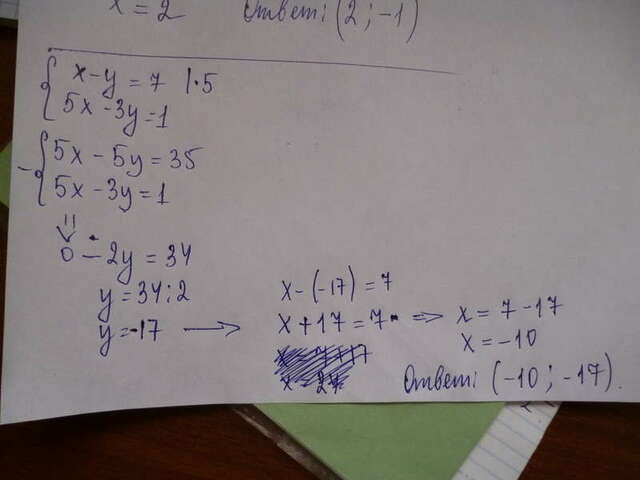 x = 2 Ответ: (2; -1)
x - y = 7 |·5
5x - 3y = 1
5x - 5y = 35
5x - 3y = 1
0 - 2y = 34
y = 34 : 2
y = -17 → x - (-17) = 7
x + 17 = 7 ⇒ x = 7 - 17
x = -10
Ответ: (-10; -17).